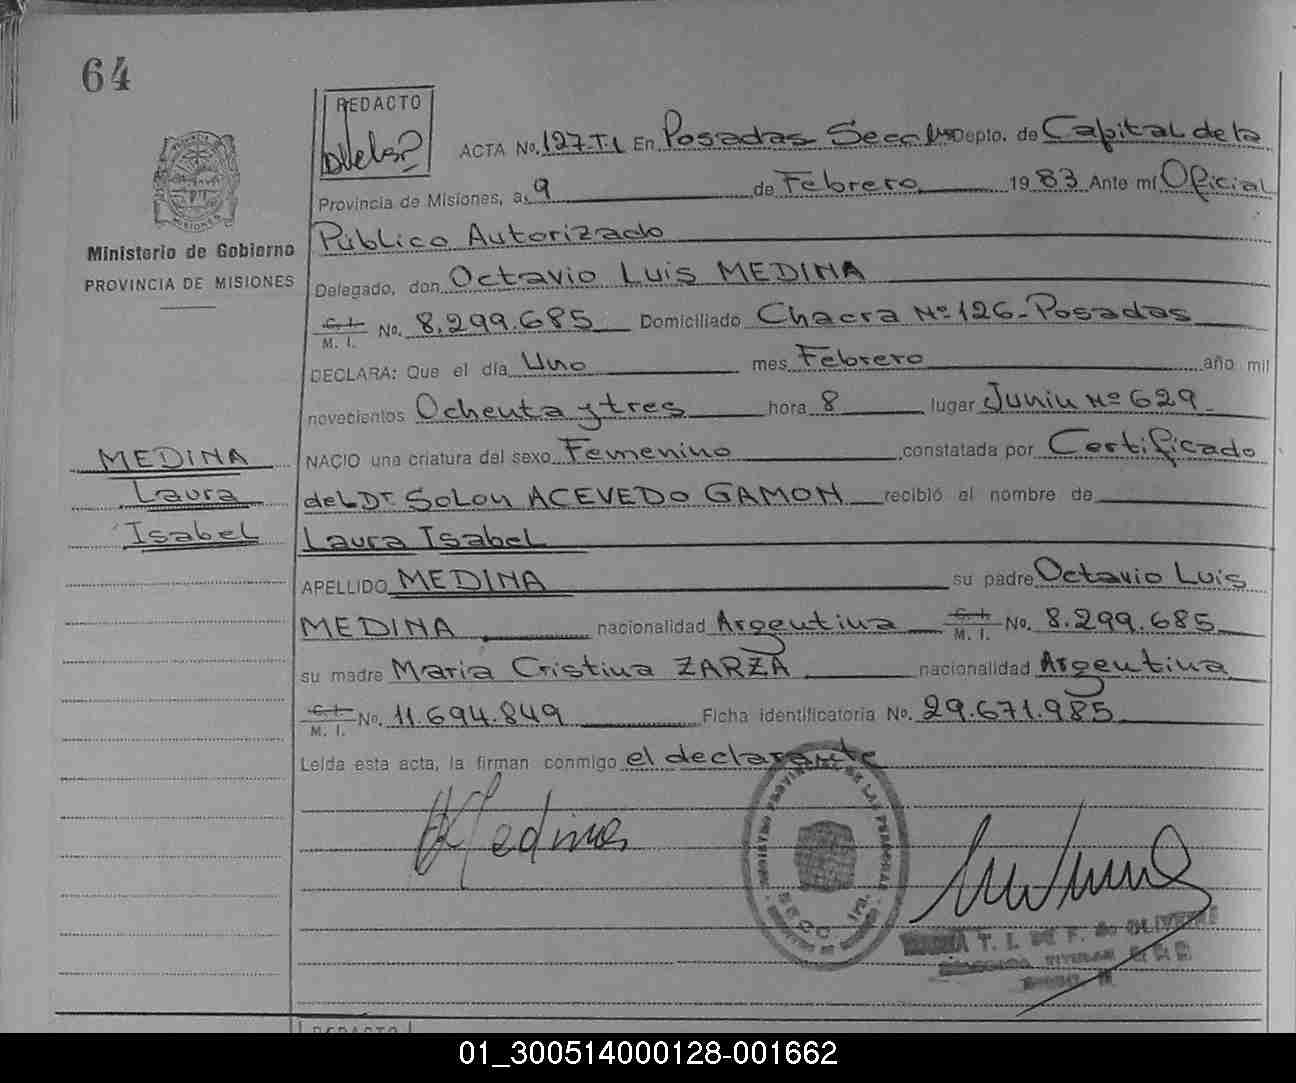 64
REDACTO
ACTA No. 127-T.I En Posadas Secc. Depto. de Capital de la
Provincia de Misiones, a 9 de Febrero 1983 Ante mí Oficial
Ministerio de Gobierno
PROVINCIA DE MISIONES
Público Autorizado
Delegado, don Octavio Luis MEDINA
C. I. M. I. No. 8.299.685 Domiciliado Chacra Nº 126 - Posadas
DECLARA: Que el día Uno mes Febrero año mil
novecientos Ochenta y tres hora 8 lugar Junin Nº 629
MEDINA
Laura
Isabel
NACIO una criatura del sexo Femenino constatada por Certificado
del Dr Solon ACEVEDO GAMON recibió el nombre de
Laura Isabel
APELLIDO MEDINA su padre Octavio Luis
MEDINA nacionalidad Argentina C. I. M. I. No. 8.299.685
su madre Maria Cristina ZARZA nacionalidad Argentina
C. I. M. I. No. 11.694.849 Ficha identificatoria No. 29.671.985
Leída esta acta, la firman conmigo el declarante
Medina
REGISTRO PROVINCIAL DE LAS PERSONAS
T. I. DE F. de OLIVEIRA
TITULAR
REDACTO
01_300514000128-001662